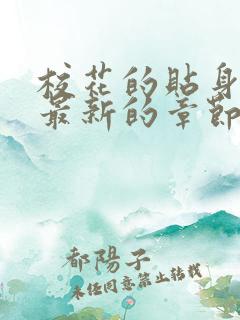 校花的貼身
最新的章節
都陽子
未经同意禁止转载